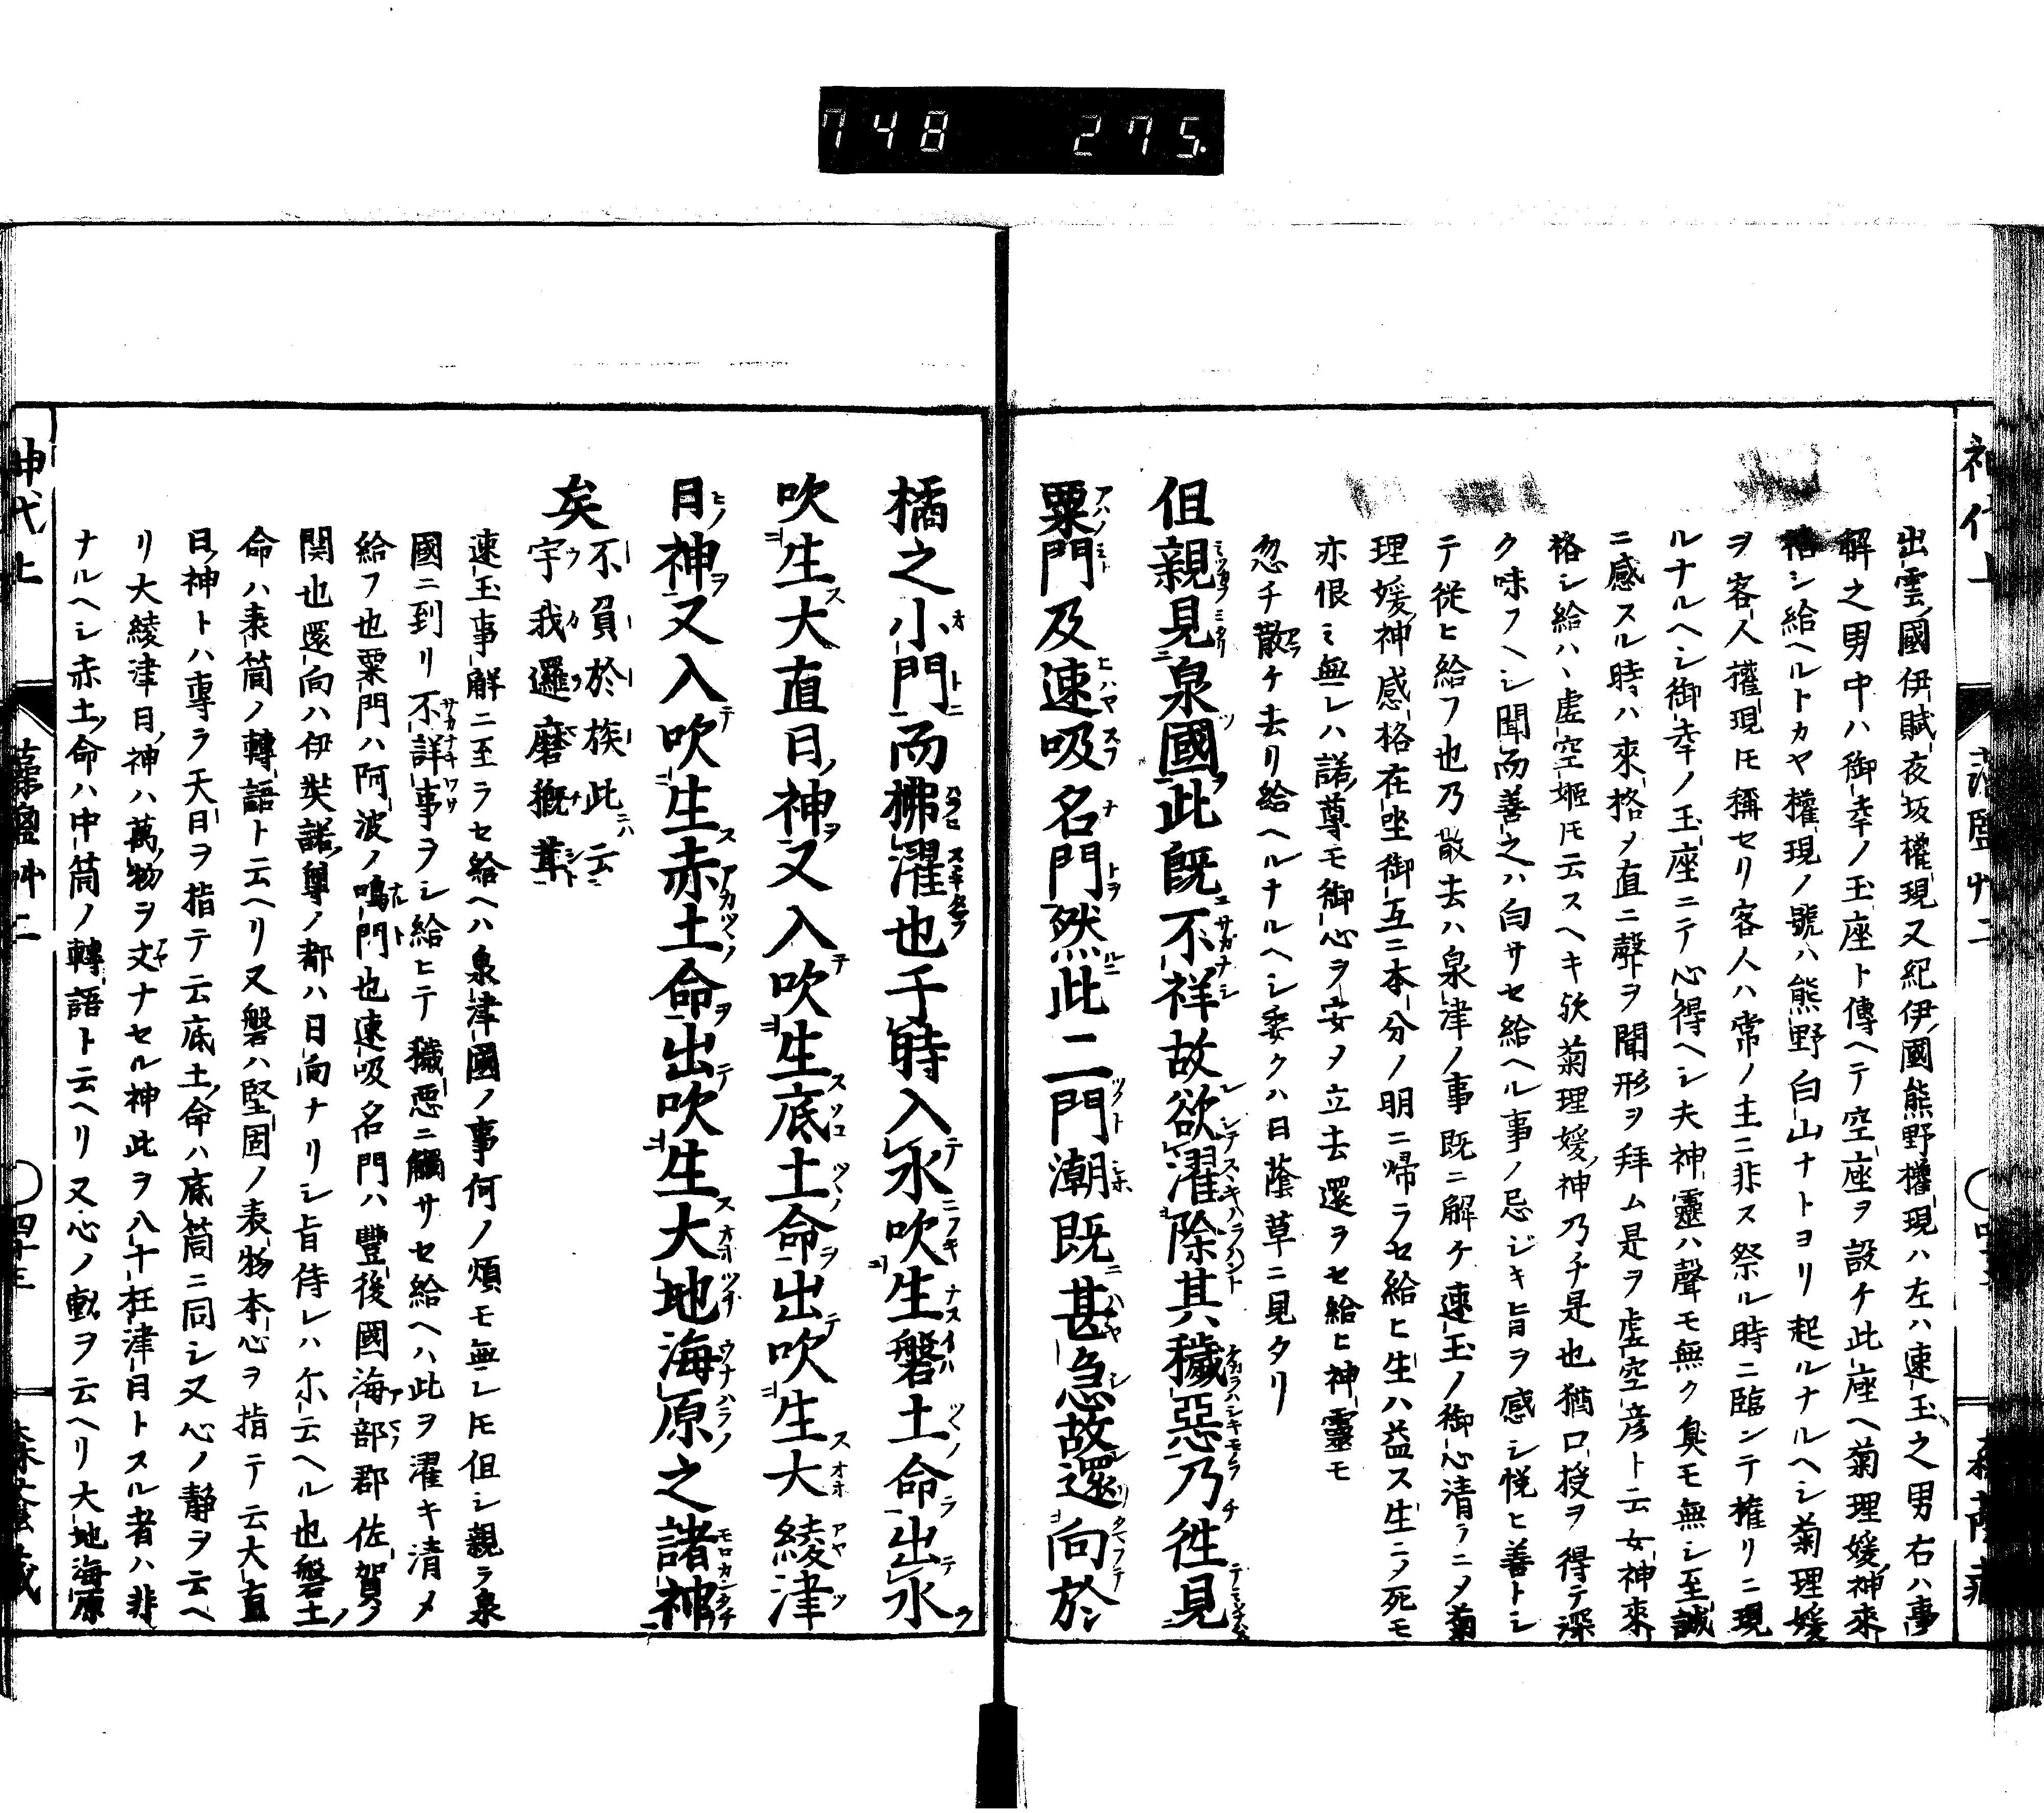 748 275.
出雲ノ國伊賦夜坂權現又紀伊ノ國熊野權現ハ左ハ速玉之男右ハ事
解之男中ハ御幸ノ玉座ト傳ヘテ空座ヲ設ケ此座ヘ菊理媛神來
格シ給ヘルトカヤ權現ノ號ハ熊野白山ナトヨリ起ルナルヘシ菊理媛
ヲ客人權現トモ稱セリ客人ハ常ノ主ニ非ス祭ル時ニ臨ンテ權リニ現
ルナルヘシ御幸ノ玉座ニテ心得ヘシ夫神靈ハ聲モ無ク臭モ無シ至誠
ニ感スル時ハ來格メ直ニ聲ヲ聞形ヲ拜ム是ヲ虚空彦ト云女神來
格シ給ハヽ虚空姫トモ云スヘキ欤菊理媛神乃チ是也猶口授ヲ得テ深
ク味フヘシ聞而善之ハ白サセ給ヘル事ノ忌ジキ旨ヲ感シ悦ヒ善トシ
テ從ヒ給フ也乃散去ハ泉津ノ事既ニ解ケ速玉ノ御心清ラニメ菊
理媛神感格在坐御互ニ本分ノ明ニ帰ラセ給ヒ生ハ益ス生ニメ死モ
亦恨ミ無レハ諾尊モ御心ヲ安メ立去還ヲセ給ヒ神靈モ
忽チ散ケ去リ給ヘルナルヘシ委クハ日蔭草ニ見タリ
但親見泉國此既不祥故欲濯除其穢惡乃徃見
粟門及速吸名門然此二門潮既甚急故還向於
橘之小門而拂濯也于時入水吹生磐土命出水
吹生大直日神又入吹生底土命出吹生大綾津
日神又入吹生赤土命出吹生大地海原之諸神
矣
不負於族此ニハ云
宇我邏磨穊茸
速玉事解ニ至ラセ給ヘハ泉津國ノ事何ノ煩モ無レトモ但シ親ラ泉
國ニ到リ不詳事ヲシ給ヒテ穢惡ニ觸サセ給ヘハ此ヲ濯キ清メ
給フ也粟門ハ阿波ノ鳴門也速吸名門ハ豐後國海部郡佐賀ノ
関也還向ハ伊奘諾尊ノ都ハ日向ナリシ旨侍レハ尓云ヘル也磐土ノ
命ハ表筒ノ轉語ト云ヘリ又磐ハ堅固ノ表物本心ヲ指テ云大直
日神トハ專ラ天日ヲ指テ云底土命ハ底筒ニ同シ又心ノ靜ヲ云ヘ
リ大綾津日神ハ萬物ヲ文ナセル神此ヲ八十枉津日トスル者ハ非
ナルヘシ赤土命ハ中筒ノ轉語ト云ヘリ又心ノ動ヲ云ヘリ大地海原
神代上
四十三